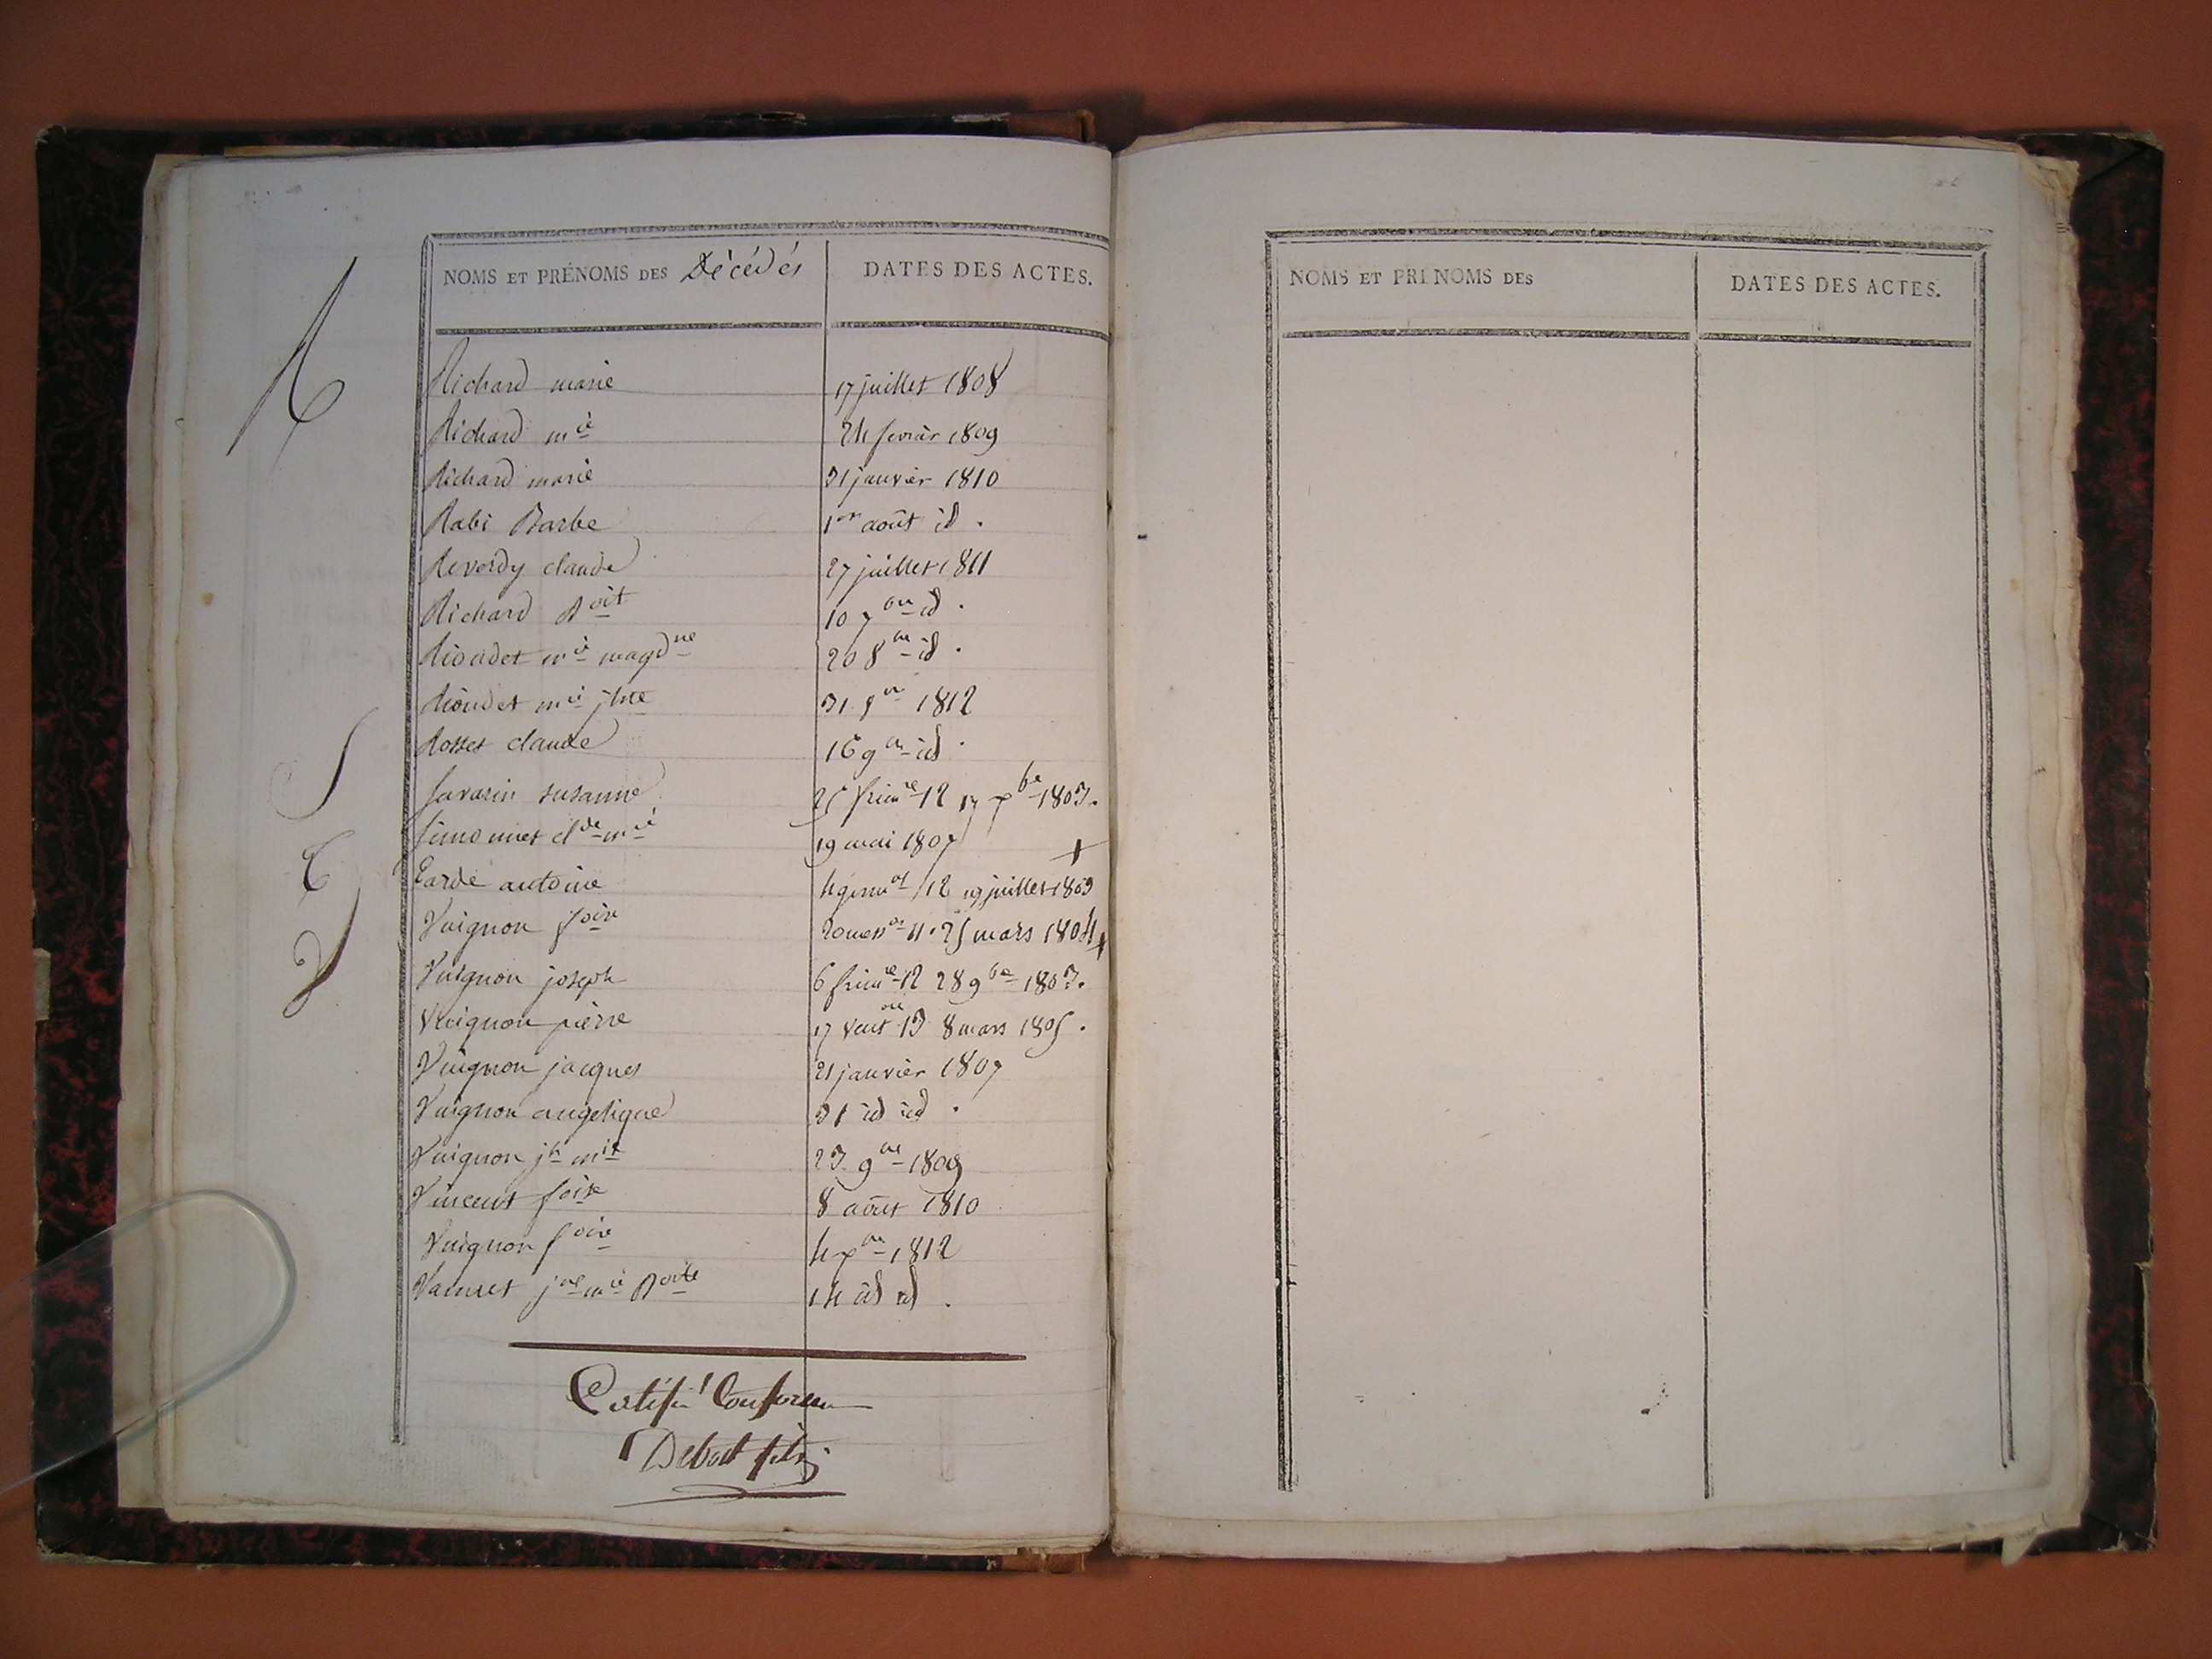 NOMS ET PRÉNOMS DES Décédés DATES DES ACTES.
R
Richard marie 17 juillet 1808
Richard mie 24 fevrier 1809
Richard marie 31 janvier 1810
Rabi Barbe 1er août id.
Reverdy claude 27 juillet 1811
Richard Boit 10 7bre id.
Rioudet mie magdne 20 8bre id.
Rioudet mie jhte 31 8bre 1812
Rosset claude 16 9bre id.
S
Savarin susanne 25 frimre 12 17 xbre 1803.
Simonnet clde mie 19 mai 1807
T
Tarde antoine germal 12 19 juillet 1803
V
Vuignon foise 20 messor 11. 25 mars 1804
Vuignon joseph 6 frimre 12 28 9bre 1803.
Vuignon pierre 17 ventose 13 8 mars 1805.
Vuignon jacques 21 janvier 1807
Vuignon angelique 31 id id.
Vuignon jh mie 23 9bre 1809
Vincent foise 8 août 1810
Vuignon foise 4 xbre 1812
jne mie Boite 14 id id.
Certifié Conforme
fils
NOMS ET PRÉNOMS DES DATES DES ACTES.